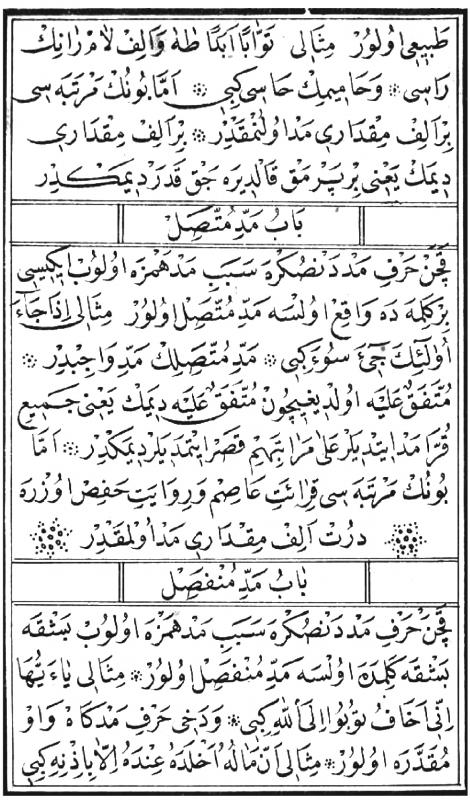 طَبِيعِى اُولُورْ مِثَالِى تَوَّابًا اَبَدًا طٰهٰ وَاَلِفْ لَامْ رَانِكْ
رَاسِى ۞ وَحَامِيمِكْ حَاسِى كِبِى ۞ اَمَّا بُونُكْ مَرْتَبَه سِى
بِرْ اَلِفْ مِقْدَارِى مَدْ اُولُنْمَقْدِرْ ۞ بِرْ اَلِفْ مِقْدَارِى
دِيمَكْ يَعْنِى بِرْ پَرْمَقْ قَالْدِيرَه جَقْ قَدَرْ دِيمَكْدِرْ
بَابُ مَدِّ مُتَّصِلْ
قَچَنْ حَرْفِ مَدْدَنْ صُكْرَه سَبَبِ مَدْ هَمْزَه اُولُوبْ اِيكِيسِى
بِرْ كَلِمَه دَه وَاقِعْ اُولْسَه مَدِّ مُتَّصِلْ اُولُورْ مِثَالِى اِذَا جَٓاءَ
اُولٰٓئِكَ جِٓىءَ سُٓوءَ كِبِى ۞ مَدِّ مُتَّصِلِكْ مَدِّ وَاجِبْدِرْ ۞
مُتَّفَقٌ عَلَيْهِ اُولْدِيغِيچُونْ مُتَّفَقٌ عَلَيْهِ دِيمَكْ يَعْنِى جَمِيعِ
قُرَّا مَدْ اِيتْدِيلَرْ عَلٰى مَرَاتِبِهِمْ قَصْر اِيتْمَدِيلَرْ دِيمَكْدِرْ ۞ اَمَّا
بُونُكْ مَرْتَبَه سِى قِرَائَتِ عَاصِمْ وَرِوَايَتِ حَفِصْ اُوزْرَه
دُرْتْ اَلِفْ مِقْدَارِى مَدْ اُولْمَقْدِرْ
بَابُ مَدِّ مُنْفَصِلْ
قَچَنْ حَرْفِ مَدْدَنْ صُكْرَه سَبَبِ مَدْ هَمْزَه اُولُوبْ بَشْقَه
بَشْقَه كَلِمَدَنْ اُولْسَه مَدِّ مُنْفَصِلْ اُولُورْ ۞ مِثَالِى يَٓا ءَيُّهَا
اِنِّٓى اَخَافُ تُوبُٓوا اِلَى اللّٰهِ كِبِى ۞ وَدَخِى حَرْفِ مَدْ كَاهْ وَاوْ
مُقَدَّرَه اُولُورْ ۞ مِثَالِى اَنَّ مَالَهُ اَخْلَدَهُ عِنْدَهُ اِلَّا بِاِذْنِه كِبِى